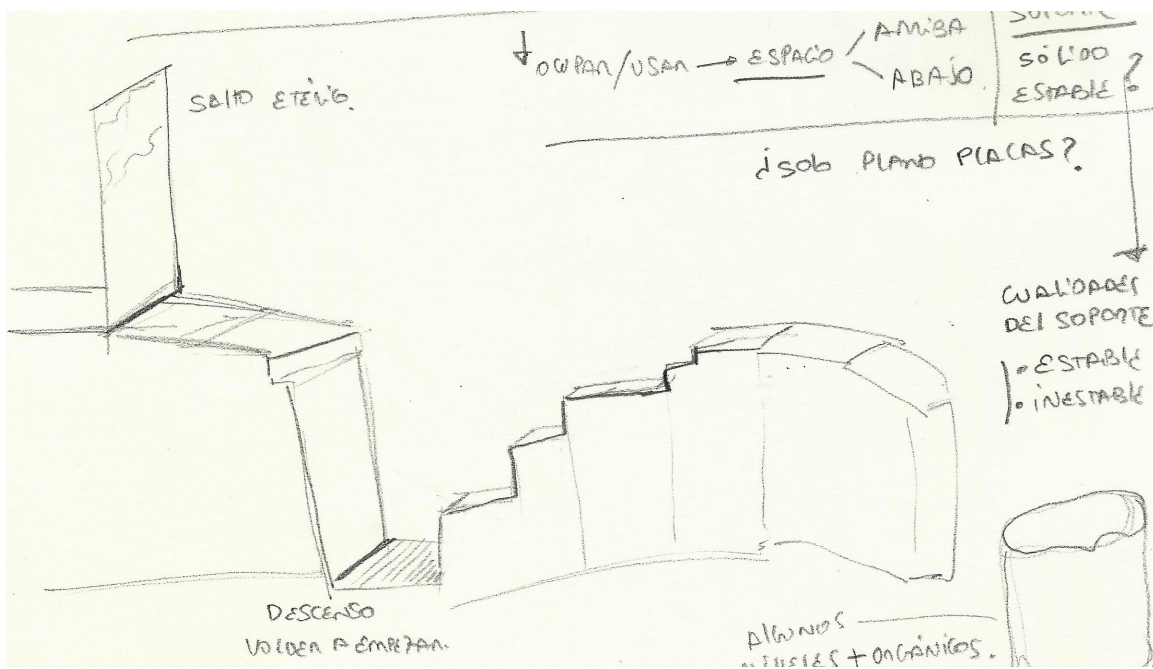 SALTO ETÉREO.
↓ OCUPAR/USAR → ESPACIO
ARRIBA
ABAJO.
SÓLIDO
ESTABLE?
¿SOLO PLANO PLACAS?
CUALIDADES
DEL SOPORTE
• ESTABLE
• INESTABLE
DESCENSO
VOLVER A EMPEZAR.
ALGUNOS
NIVELES + ORGÁNICOS.